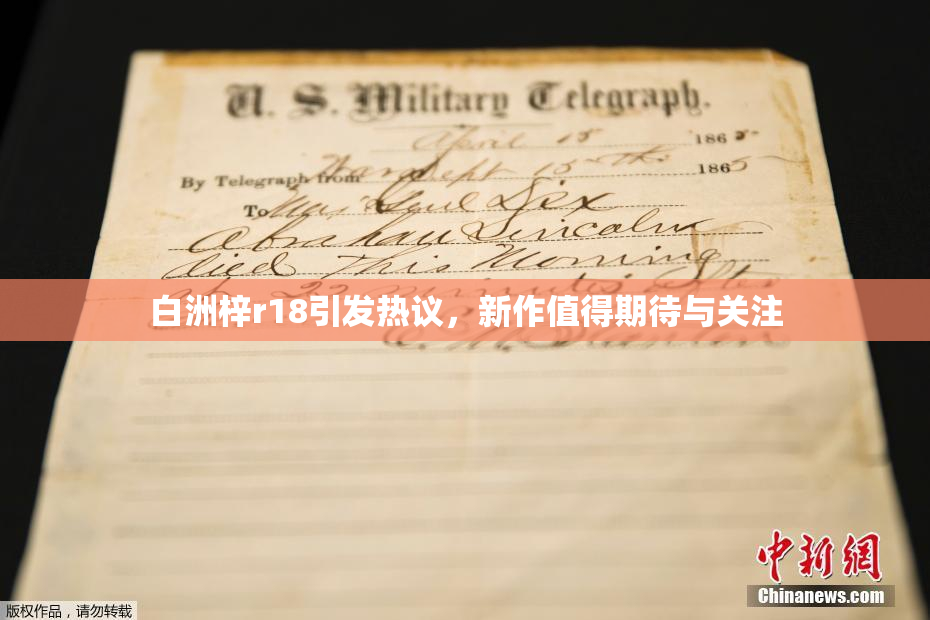 U. S. Military Telegraph.
April 15 1865
By Telegraph from War Dept 15 1865
To Maj Genl Dix
Abraham Lincoln
died This Morning
at 22 minutes after
白洲梓r18引发热议，新作值得期待与关注
E. M. Stanton
中新网
Chinanews.com
版权作品，请勿转载